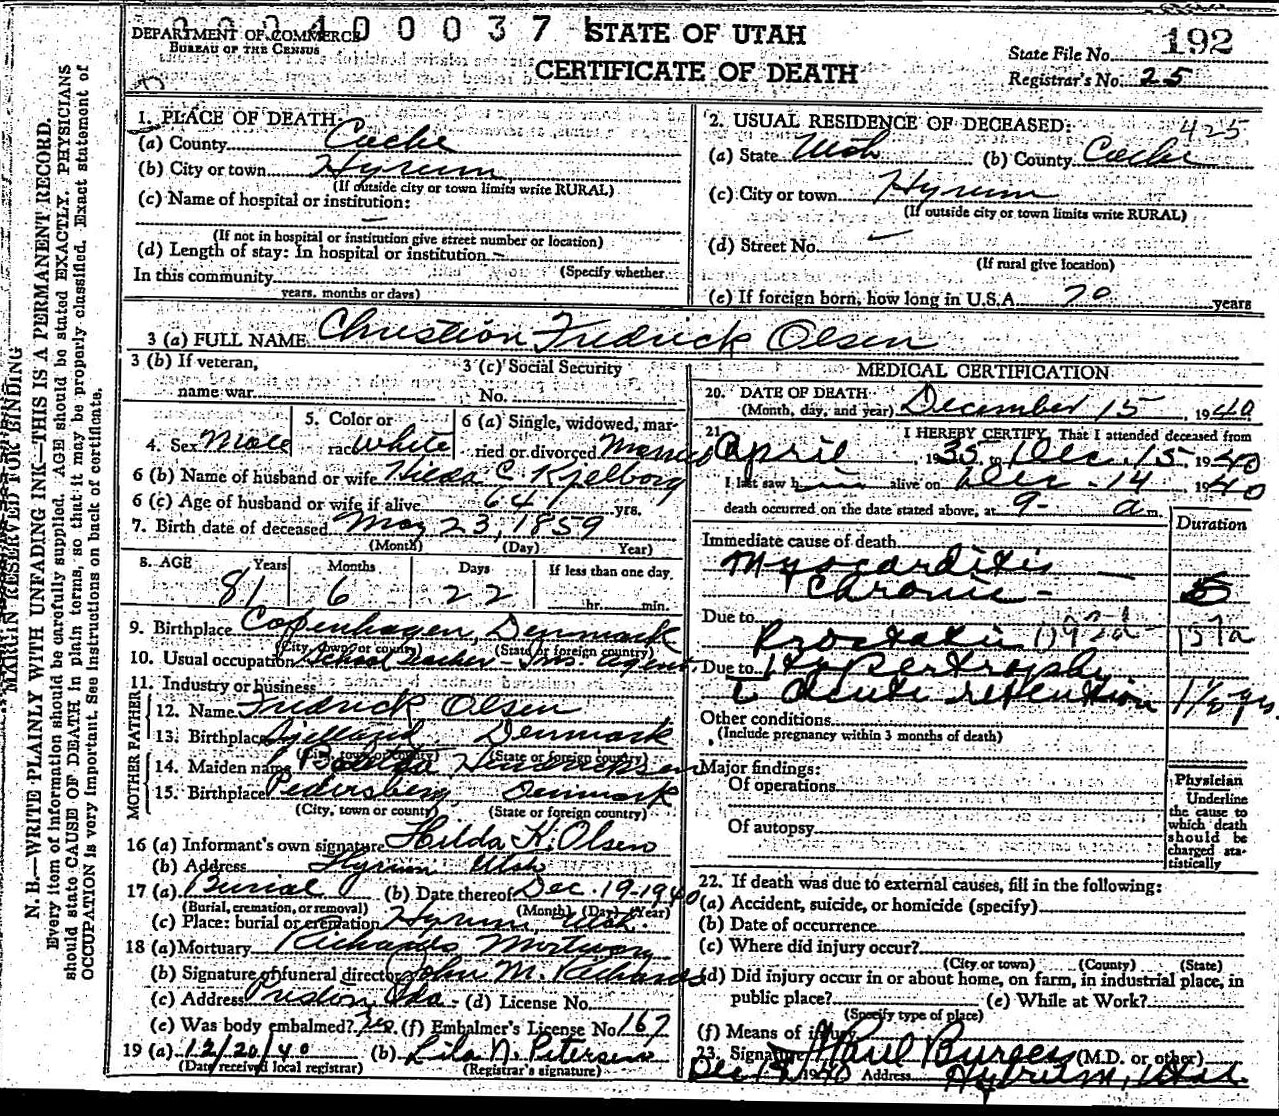 DEPARTMENT OF COMMERCE
BUREAU OF THE CENSUS
0 0 3 7
STATE OF UTAH
CERTIFICATE OF DEATH
State File No. 192
Registrar's No. 25
MARGIN RESERVED FOR BINDING
N. B.—WRITE PLAINLY WITH UNFADING INK—THIS IS A PERMANENT RECORD.
Every item of information should be carefully supplied. AGE should be stated EXACTLY. PHYSICIANS
should state CAUSE OF DEATH in plain terms, so that it may be properly classified. Exact statement of
OCCUPATION is very important. See instructions on back of certificate.
1. PLACE OF DEATH:
(a) County Cache
(b) City or town Hyrum
(If outside city or town limits write RURAL)
(c) Name of hospital or institution:
(If not in hospital or institution give street number or location)
(d) Length of stay: In hospital or institution
(Specify whether
In this community
years, months or days)
2. USUAL RESIDENCE OF DECEASED: 425
(a) State Utah (b) County Cache
(c) City or town Hyrum
(If outside city or town limits write RURAL)
(d) Street No.
(If rural give location)
(e) If foreign born, how long in U.S.A. 70 years
3 (a) FULL NAME Christian Fredrick Olsen
3 (b) If veteran, name war
3 (c) Social Security No.
4. Sex Male
5. Color or race White
6 (a) Single, widowed, married or divorced Married
6 (b) Name of husband or wife Hilda C Kjelborg
6 (c) Age of husband or wife if alive 64 yrs.
7. Birth date of deceased May 23, 1859
(Month) (Day) Year)
8. AGE Years Months Days If less than one day
81 6 22 hr. min.
9. Birthplace Copenhagen, Denmark
(City, town or county) (State or foreign country)
10. Usual occupation School Teacher - Ins. Agent
11. Industry or business
FATHER
12. Name Fredrick Olsen
13. Birthplace Denmark
(City, town or county) (State or foreign country)
MOTHER
14. Maiden name
15. Birthplace Pedersberg, Denmark
(City, town or county) (State or foreign country)
16 (a) Informant's own signature Hilda K. Olsen
(b) Address Hyrum Utah
17 (a) Burial (b) Date thereof Dec. 19-1940
(Burial, cremation, or removal) (Month) (Day) (Year)
(c) Place: burial or cremation Hyrum, Utah.
18 (a) Mortuary Richards Mortuary
(b) Signature of funeral director John M. Richards
(c) Address Preston, Ida. (d) License No.
(e) Was body embalmed? Yes (f) Embalmer's License No. 167
19 (a) 12/20/40 (b) Lila N. Petersen
(Date received local registrar) (Registrar's signature)
MEDICAL CERTIFICATION
20. DATE OF DEATH
(Month, day, and year) December 15, 1940
21. I HEREBY CERTIFY, That I attended deceased from
April, 1935 to Dec. 15, 1940
I last saw him alive on Dec. 14 1940
death occurred on the date stated above, at 9- a m.
Duration
Immediate cause of death
Myocarditis
Chronic -
Due to Prostatic
Due to Hypertrophy
c acute retention 1½ yrs.
Other conditions
(Include pregnancy within 3 months of death)
Major findings:
Of operations
Of autopsy
Physician
Underline
the cause to
which death
should be
charged sta-
tistically
22. If death was due to external causes, fill in the following:
(a) Accident, suicide, or homicide (specify)
(b) Date of occurrence
(c) Where did injury occur?
(City or town) (County) (State)
(d) Did injury occur in or about home, on farm, in industrial place, in
public place? (e) While at Work?
(Specify type of place)
(f) Means of injury
23. Signature Paul Burgess (M.D. or other)
1940 Address Hyrum, Utah.